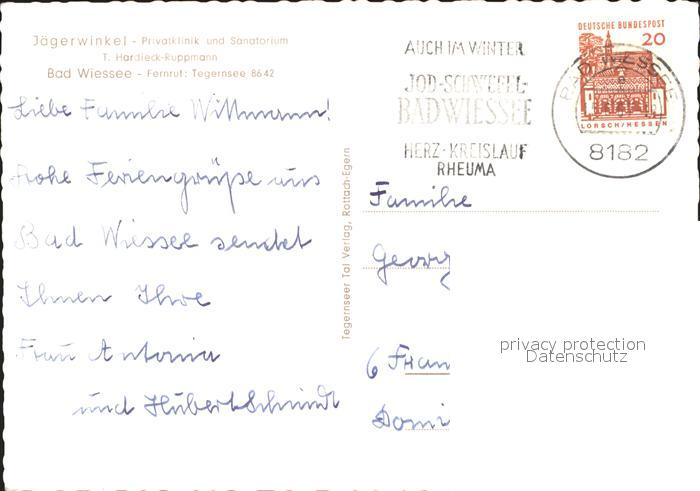 Jägerwinkel - Privatklinik und Sanatorium
T. Hardieck-Ruppmann
Bad Wiessee - Fernruf: Tegernsee 8642
Liebe Familie Wittmann!
frohe Feriengrüße aus
Bad Wiessee sendet
Ihnen Ihre
Frau Antonia
und Hubert Schmidt
Tegernseer Tal Verlag, Rottach-Egern
AUCH IM WINTER
JOD-SCHWEFEL-
BAD WIESSEE
HERZ-KREISLAUF
RHEUMA
BAD WIESSEE
8182
DEUTSCHE BUNDESPOST
20
LORSCH/HESSEN
Familie
Georg
6 Fran
Domi
privacy protection
Datenschutz